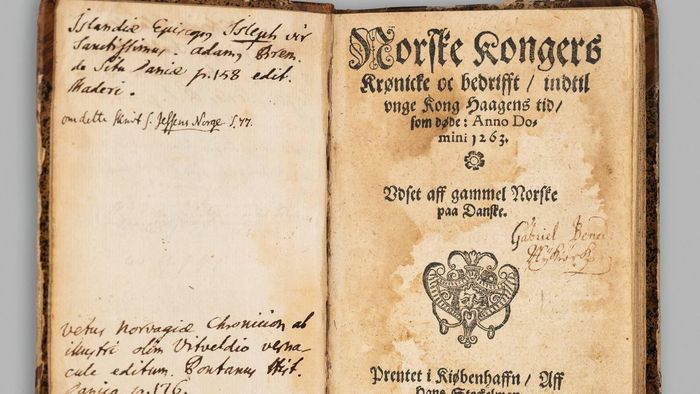 Islandiæ Episcop, Isleph vir
Sanctissimus. Adam, Brem.
de Situ Daniæ p. 158 edit.
Maderi.
om dette skrift s. Jessens Norge S. 77.
vetus Norvagiæ Chronicion ab
illustri olim Vitveldio verna
cule editum. Pontanus Hist.
Danica p. 176.
Norske Kongers
Krønicke oc bedrifft / indtil
vnge Kong Haagens tid /
som døde: Anno Do-
mini 1263.
Vdset aff gammel Norske
paa Danske.
Gabriel
Prentet i Kiøbenhaffn / Aff
Hans Stockelman